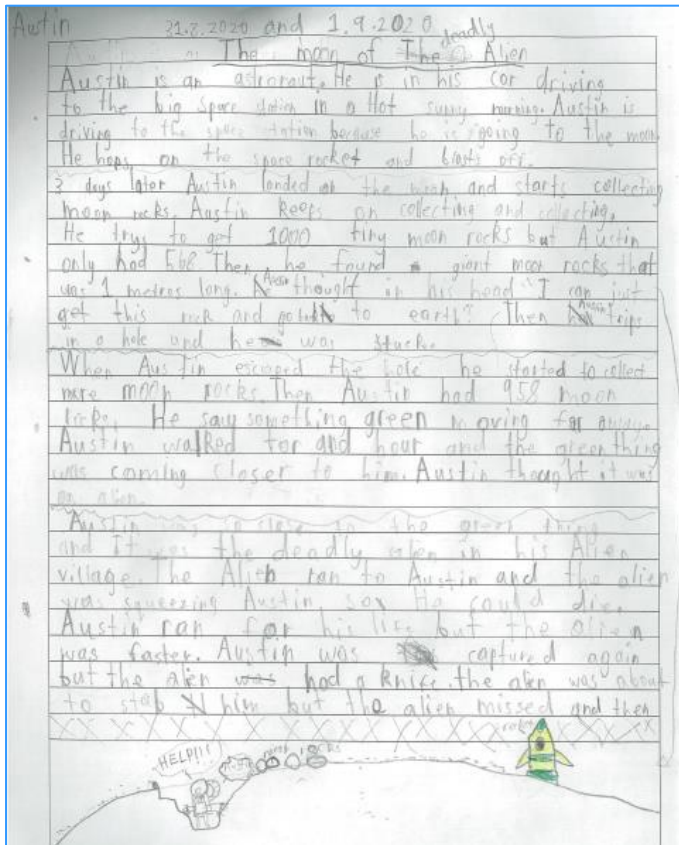 Austin 31.8.2020 and 1.9.2020
The moon of The deadly Alien
Austin is an astronaut. He is in his car driving
to the big space station in a Hot sunny morning. Austin is
driving to the space station because he is going to the moon
He hops on the space rocket and blasts off.
3 days later Austin landed on the moon and starts collecting
moon rocks. Austin keeps on collecting and collecting.
He trys to get 1000 tiny moon rocks but Austin
only had 568 Then he found giant moon rocks that
was 1 metres long. Austin thought in his head "I can just
get this rock and go to earth" Then Austin trips
in a hole and he was stuck.
When Austin escaped the hole he started to collect
more moon rocks. Then Austin had 958 moon
rocks. He saw something green moving far away
Austin walked for and hour and the green thing
was coming closer to him. Austin thought it was
an alien.
Austin was so close to the green thing
and It was the deadly alien in his Alien
village. The Alien ran to Austin and the alien
was squeezing Austin so He could die.
Austin ran for his life but the alien
was faster. Austin was captured again
but the alien was had a knife. the alien was about
to stab him but the alien missed and then
rocket
HELP!!! moon rocks